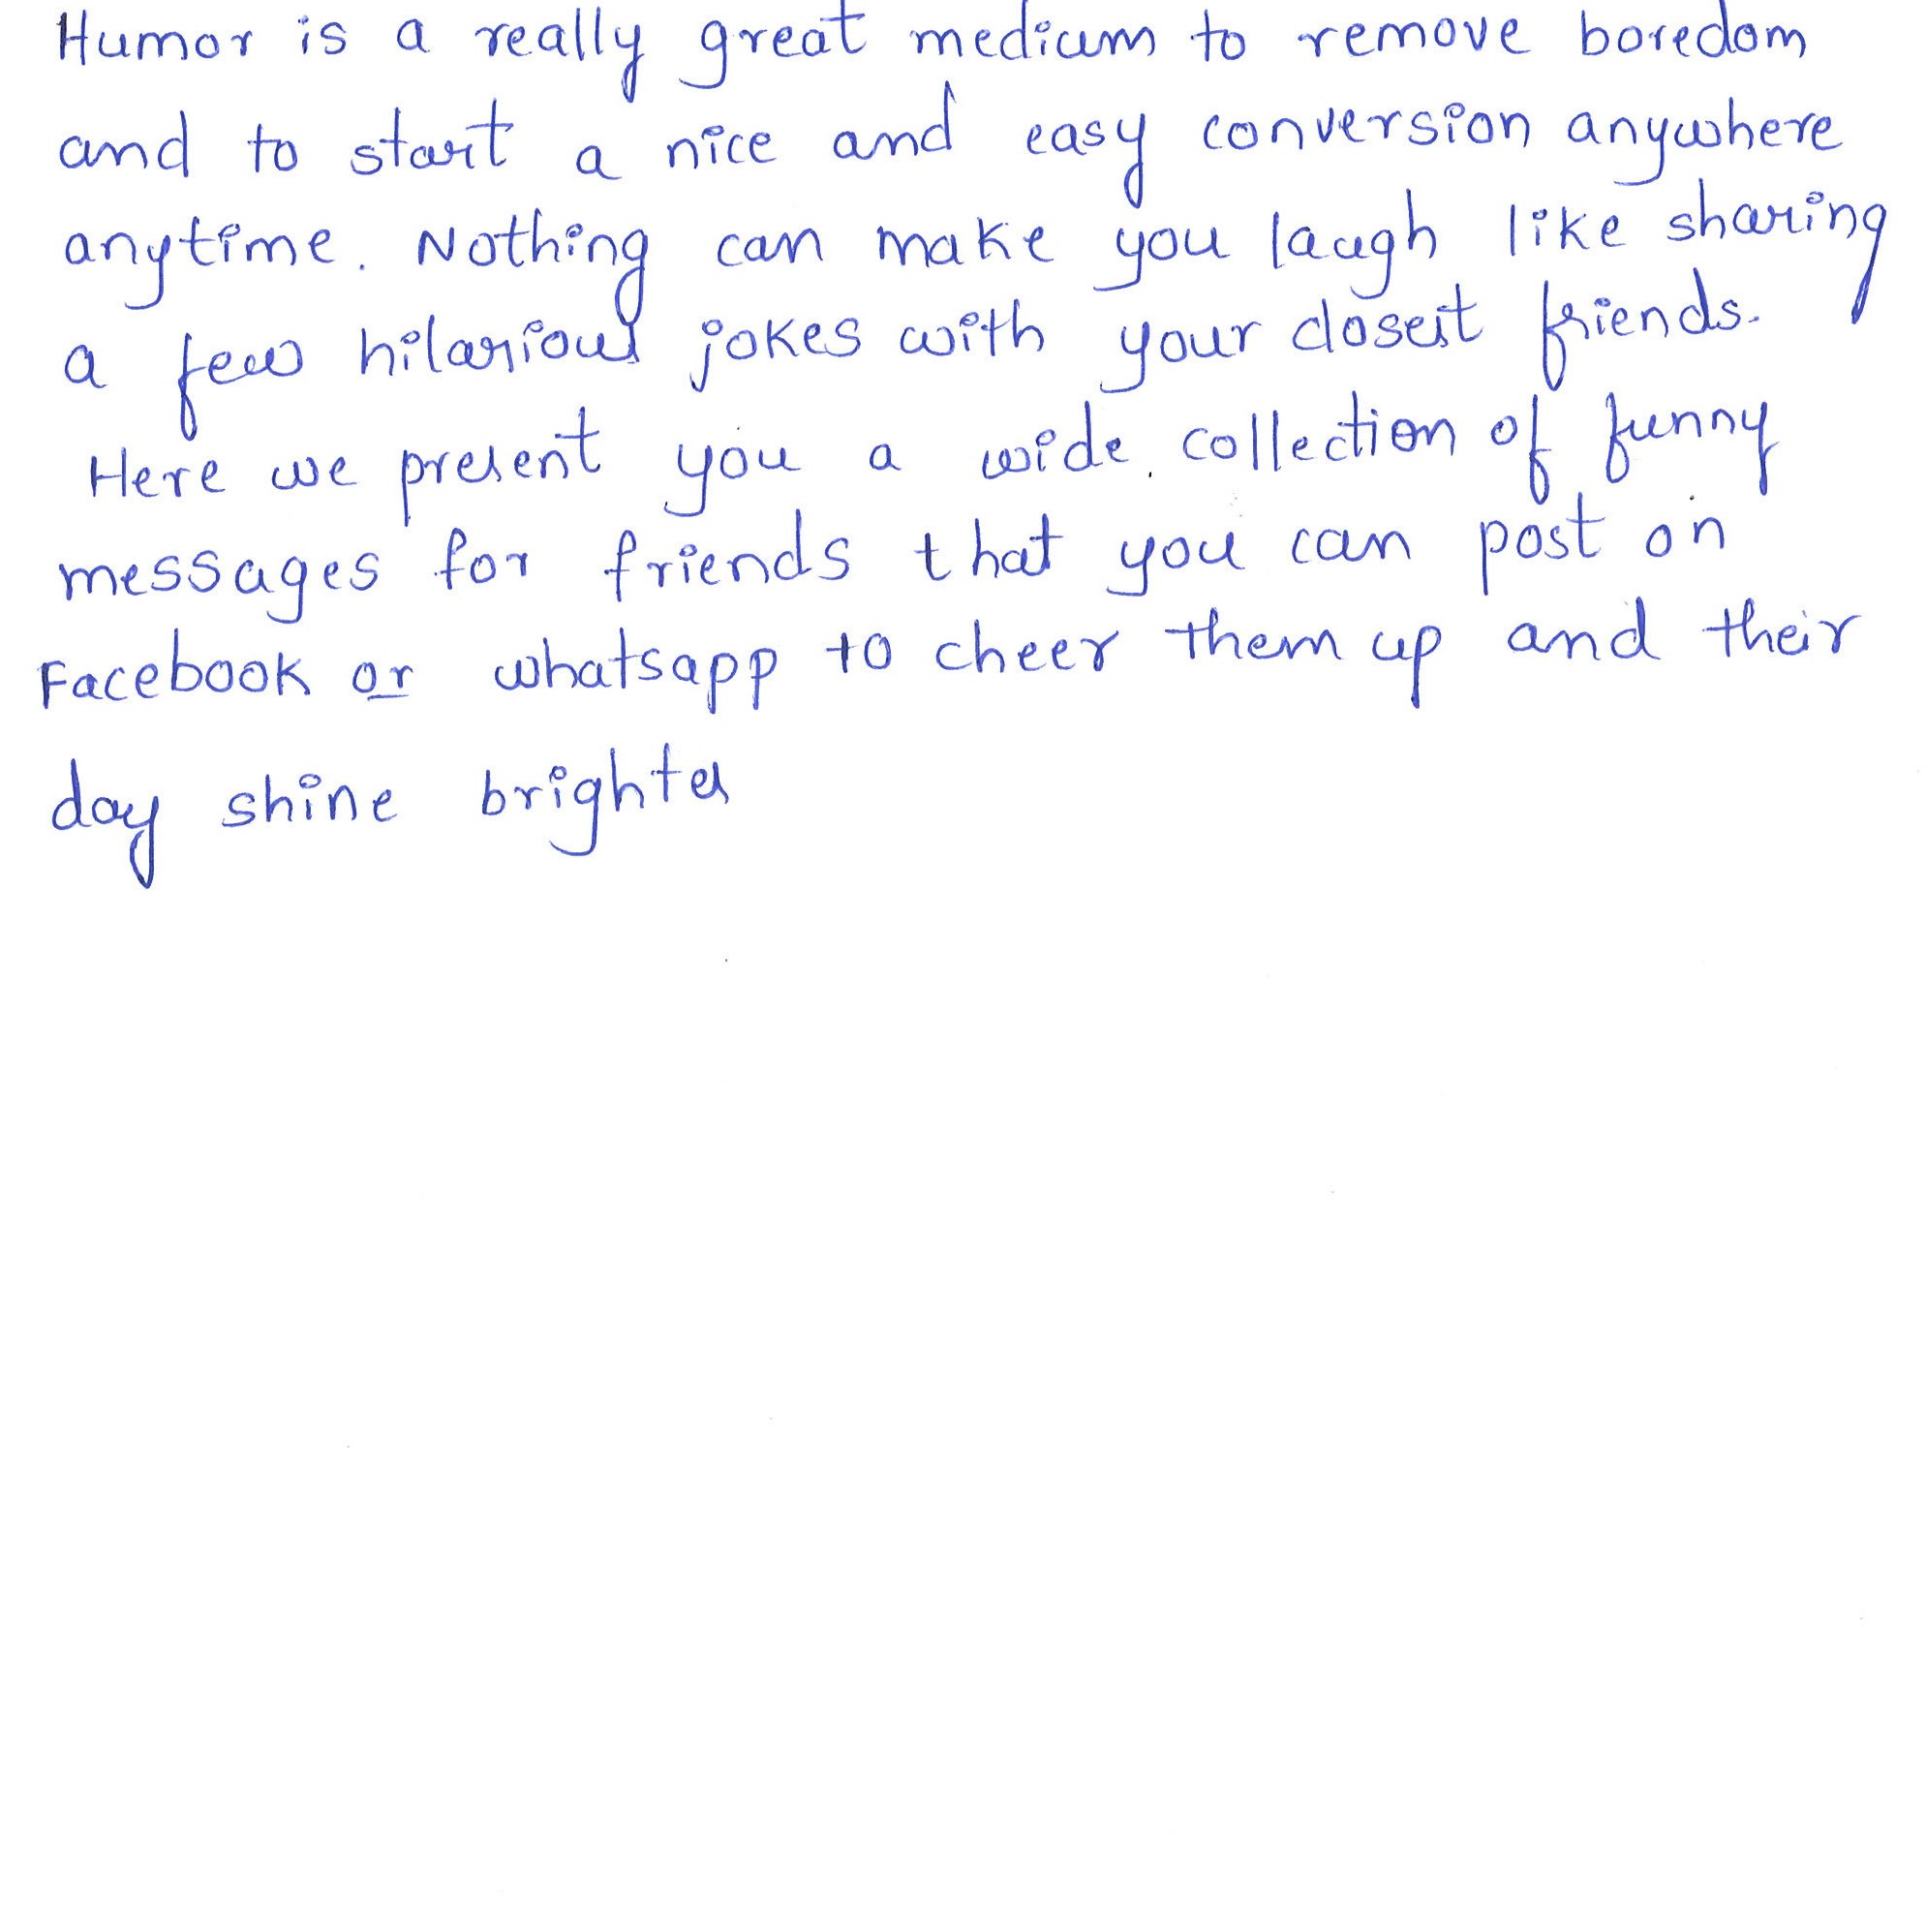 Humor is a really great medium to remove boredom
and to start a nice and easy conversion anywhere
anytime. Nothing can make you laugh like sharing
a few hilarious jokes with your closest friends.
Here we present you a wide. collection of funny
messages for friends that you can post on
Facebook or whatsapp to cheer them up and their
day shine brighter